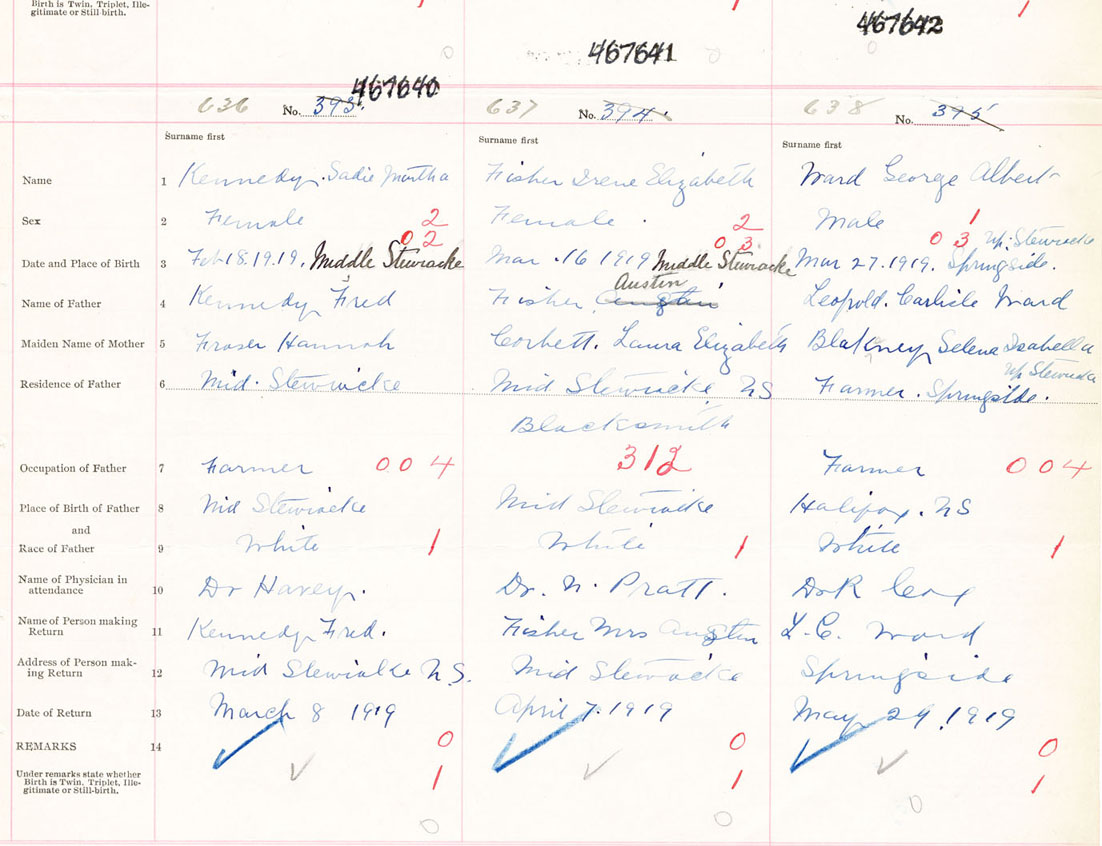 Birth is Twin, Triplet, Ille-
gitimate or Still-birth.
1 1 1
0 0 0
467640 467641 467642
636 No. 393 637 No. 394 638 No. 395
Surname first Surname first Surname first
Name 1 Kennedy Sadie Martha Fisher Irene Elizabeth Ward George Albert
Sex 2 Female 2 Female 2 Male 1
02 03 03 Up. Stewiacke
Date and Place of Birth 3 Feb 18.1919. Middle Stewiacke Mar 16 1919 Middle Stewiacke Mar 27.1919. Springside.
Austin
Name of Father 4 Kennedy Fred Fisher, Leopold. Carlisle Ward
Maiden Name of Mother 5 Fraser Hannah Corbett. Laura Elizabeth Blakney Selena Isabella
Up Stewiacke
Residence of Father 6 Mid. Stewiacke Mid Stewiacke NS Farmer. Springside.
Blacksmith
Occupation of Father 7 Farmer 004 312 Farmer 004
Place of Birth of Father 8 Mid Stewiacke Mid Stewiacke Halifax. NS
and
Race of Father 9 White 1 White 1 White 1
Name of Physician in
attendance 10 Dr Havey. Dr. N. Pratt. Dr R Cox
Name of Person making
Return 11 Kennedy Fred. Fisher Mrs L. C. Ward
Address of Person mak-
ing Return 12 Mid Stewiacke N.S. Mid Stewiacke Springside
Date of Return 13 March 8 1919 April 7.1919 May 29.1919
REMARKS 14 0 0 0
Under remarks state whether
Birth is Twin, Triplet, Ille-
gitimate or Still-birth.
1 1 1
0 0 0